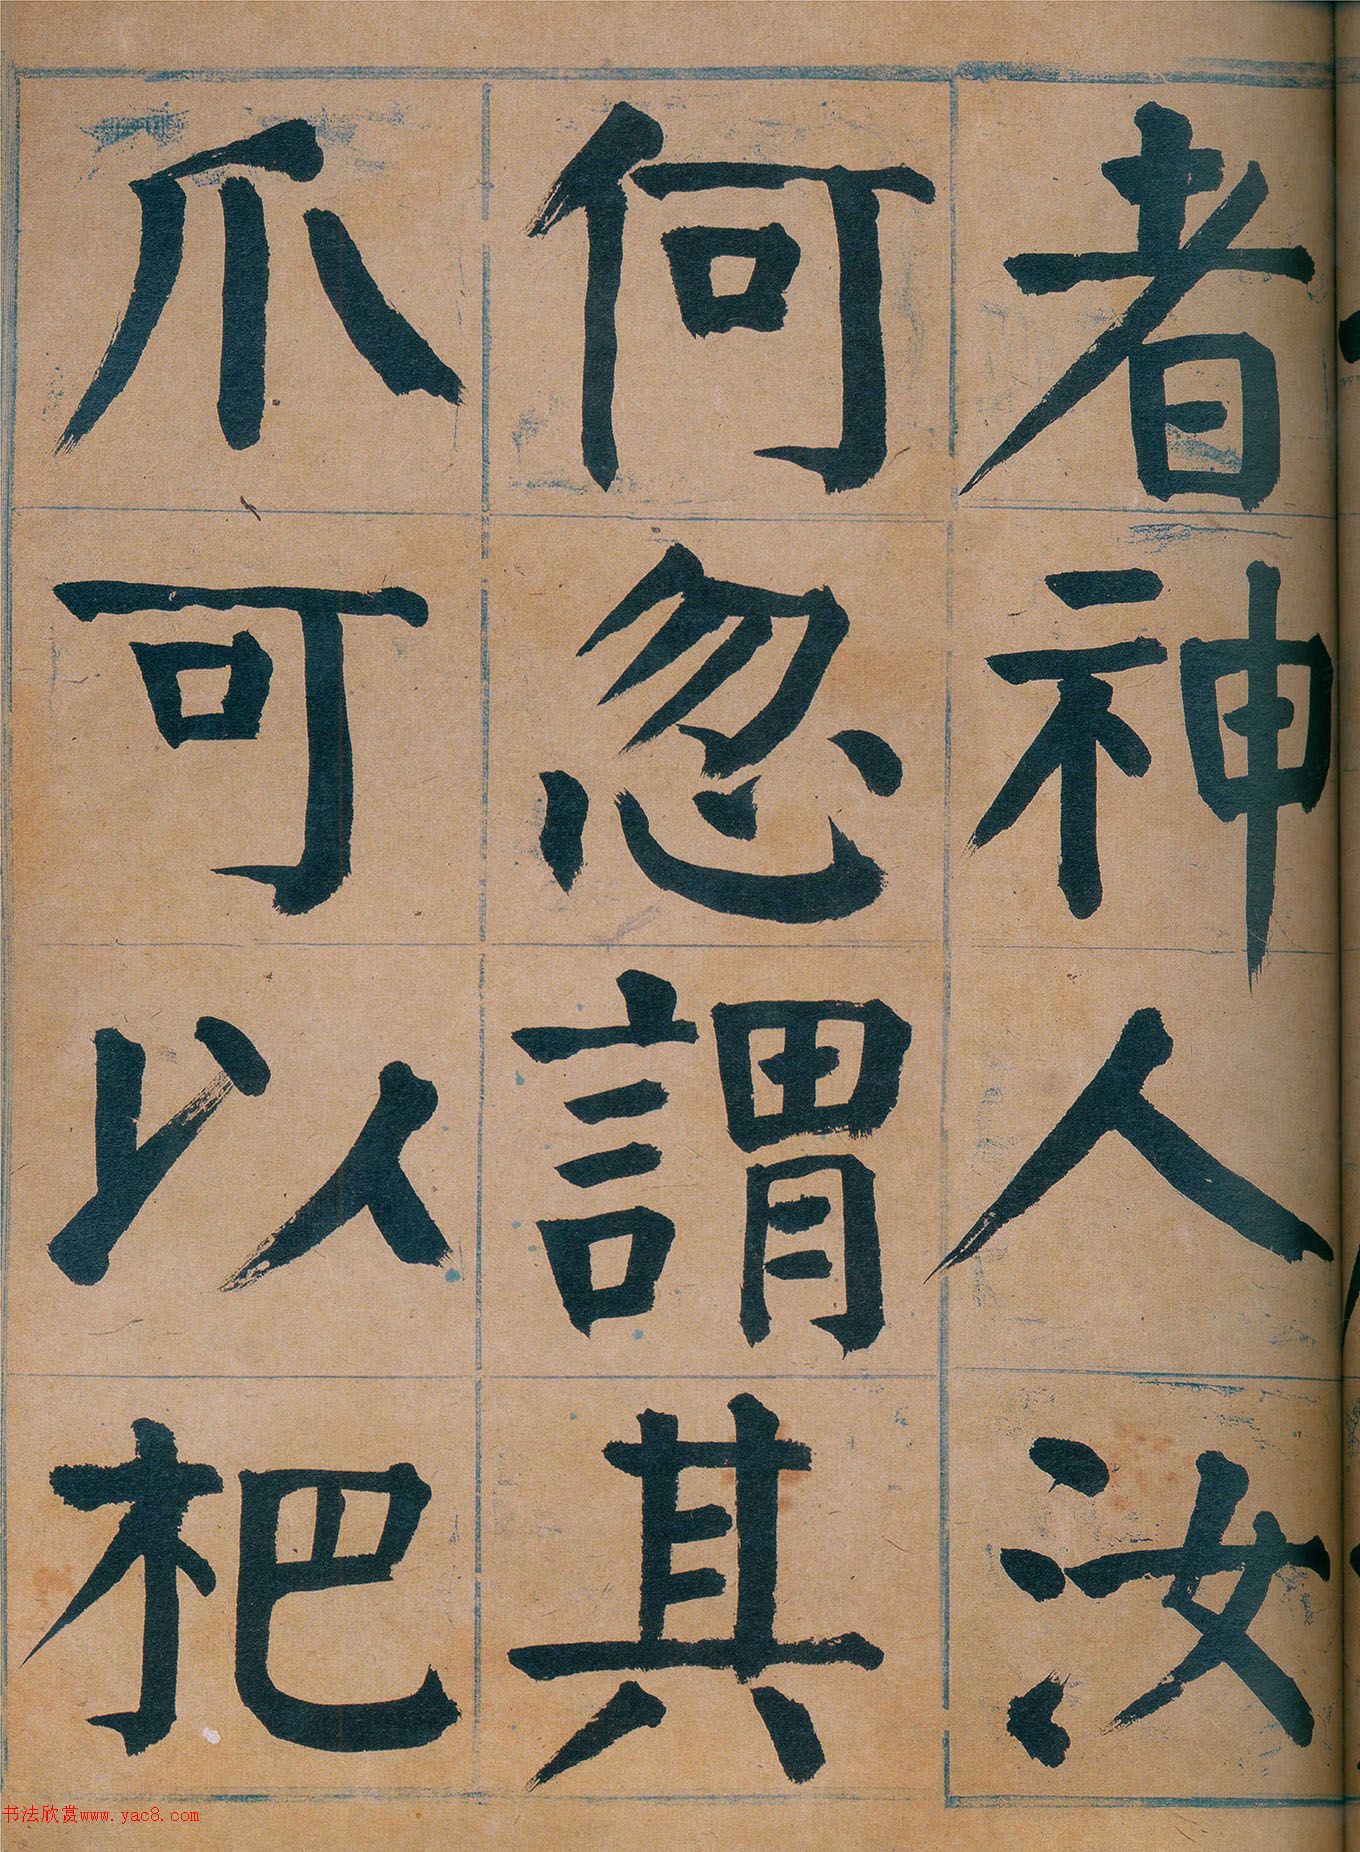 者神人汝
何忽謂其
爪可以杷
书法欣赏www.yac8.com